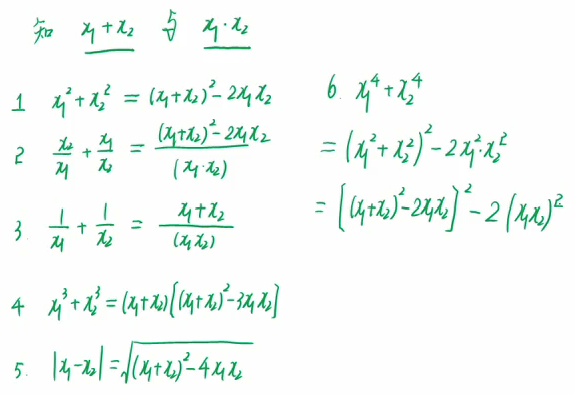 知 x₁+x₂ 与 x₁·x₂
1 x₁²+x₂² = (x₁+x₂)²-2x₁x₂
2 x₂/x₁ + x₁/x₂ = ((x₁+x₂)²-2x₁x₂)/(x₁·x₂)
3. 1/x₁ + 1/x₂ = (x₁+x₂)/(x₁x₂)
4 x₁³+x₂³ = (x₁+x₂)[(x₁+x₂)²-3x₁x₂]
5. |x₁-x₂| = √((x₁+x₂)²-4x₁x₂)
6. x₁⁴+x₂⁴
= (x₁²+x₂²)²-2x₁²·x₂²
= [(x₁+x₂)²-2x₁x₂]²-2(x₁x₂)²